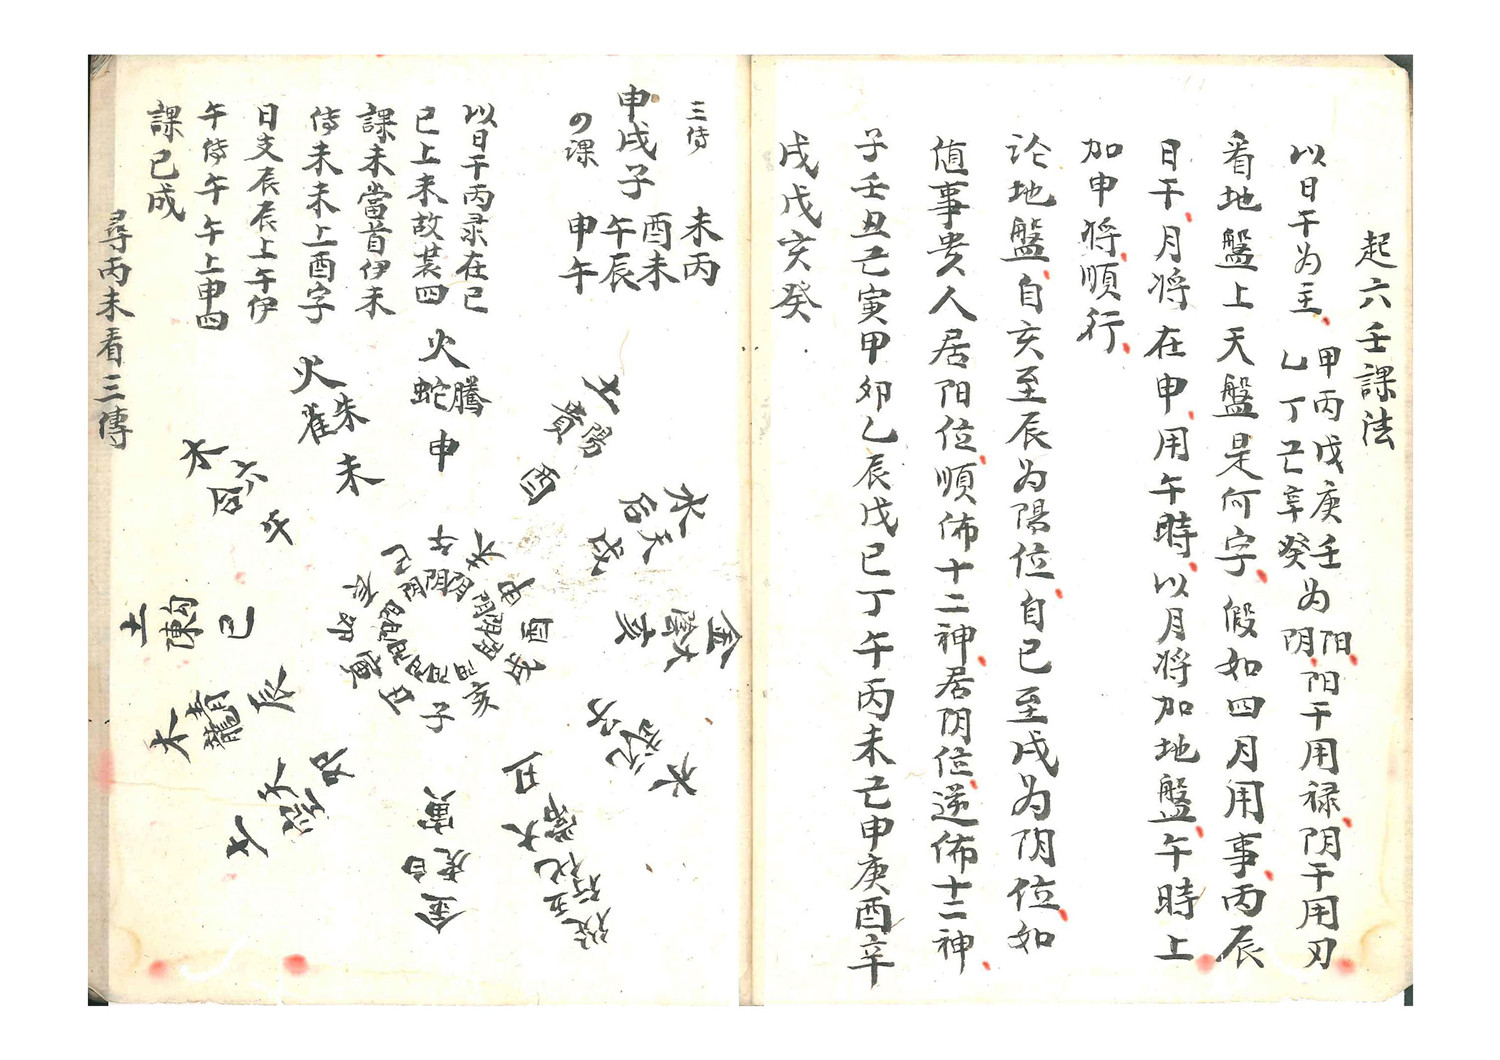 起六壬課法
以日干为主 甲丙戊庚壬 乙丁己辛癸 为 阳 阴 阳干用禄阴干用刃
看地盤上天盤是何字假如四月用事丙辰
日干月将在申用午時以月将加地盤午時上
加申将順行
论地盤自亥至辰为陽位自巳至戌为阴位如
值事贵人居阳位順佈十二神居阴位逆佈十二神
子壬丑己寅甲卯乙辰戊巳丁午丙未己申庚酉辛
戌戊亥癸
三传
申戌子
の课
未丙
酉未
午辰
申午
以日干丙录在巳
巳上未故裝四
課未當首伊未
传未未上酉字
日支辰辰上午伊
午传午午上申四
課已成
尋丙未看三傳
土 貴陽 酉
火 螣蛇 申
火 朱雀 未
木 六合 午
土 勾陳 巳
木 青龍 辰
土 天空 卯
金 白虎 寅
大常 丑
水 玄武 子
金 太陰 亥
水 天后 戌
巳 午 未 申 酉 戌 亥 子 丑 寅 卯 辰